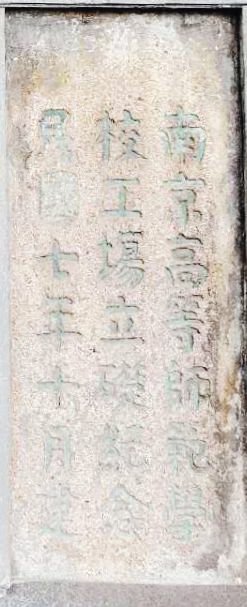 南京高等師範學
校工場立礎紀念
民國七年十月建